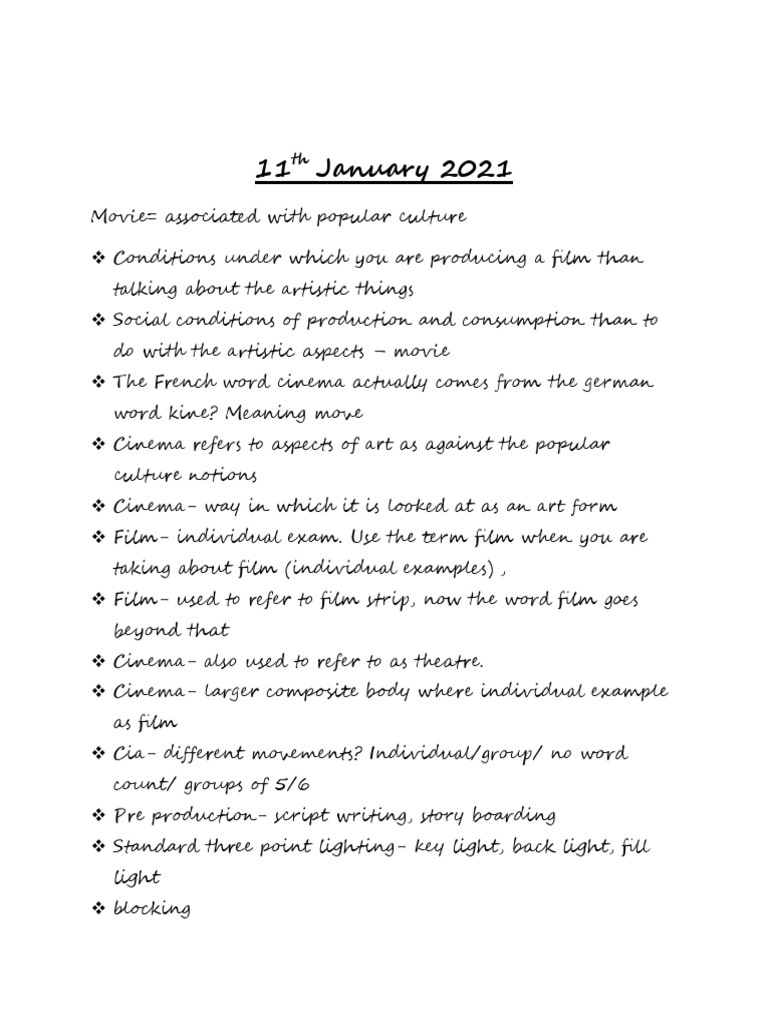 11th January 2021
Movie= associated with popular culture
❖ Conditions under which you are producing a film than
talking about the artistic things
❖ Social conditions of production and consumption than to
do with the artistic aspects – movie
❖ The French word cinema actually comes from the german
word kine? Meaning move
❖ Cinema refers to aspects of art as against the popular
culture notions
❖ Cinema- way in which it is looked at as an art form
❖ Film- individual exam. Use the term film when you are
taking about film (individual examples) ,
❖ Film- used to refer to film strip, now the word film goes
beyond that
❖ Cinema- also used to refer to as theatre.
❖ Cinema- larger composite body where individual example
as film
❖ Cia- different movements? Individual/group/ no word
count/ groups of 5/6
❖ Pre production- script writing, story boarding
❖ Standard three point lighting- key light, back light, fill
light
❖ blocking